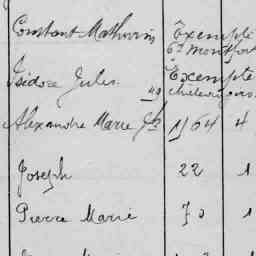 Constant Mathurin Exempté
6e Montfort
Isidore Jules Exempté
Alexandre Marie Jh 1964 4
Joseph 22 1
Pierre Marie 70 1